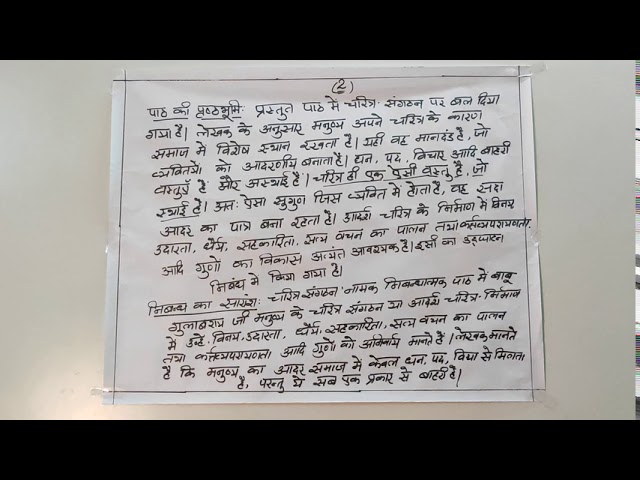 (2)
पाठ की प्रष्ठभूमि: प्रस्तुत पाठ में चरित्र संगठन पर बल दिया
गया है। लेखक के अनुसार मनुष्य अपने चरित्र के कारण
समाज में विशेष स्थान रखता है। यही वह मानदंड है, जो
व्यक्तियों को आदरणीय बनाता है। धन, पद, विचार आदि बाहरी
वस्तुएँ है और अस्थाई है। चरित्र ही एक ऐसी वस्तु है, जो
स्थाई है। अतः ऐसा सुगुण जिस व्यक्ति में होता है, वह सदा
आदर का पात्र बना रहता है। आदर्श चरित्र के निर्माण में विनय
उदारता, धैर्य, सहकारिता, सत्य वचन का पालन तथा कर्तव्यपरायणता
आदि गुणों का विकास अत्यंत आवश्यक है। इसी का उद्घाटन
निबंध में किया गया है।
निबन्ध का सारांश: चरित्र संगठन नामक निबन्धात्मक पाठ में बाबू
गुलाबराय जी मनुष्य के चरित्र संगठन या आदर्श चरित्र-निर्माण
में उन्हें, विनय, उदारता, धैर्य, सहकारिता, सत्य वचन का पालन
तथा कर्तव्यपरायणता आदि गुणों को अनिवार्य मानते हैं। लेखक मानते
है कि मनुष्य का आदर समाज में केवल धन, पद, विद्या से मिलता
है, परन्तु ये सब एक प्रकार से बाहरी है।